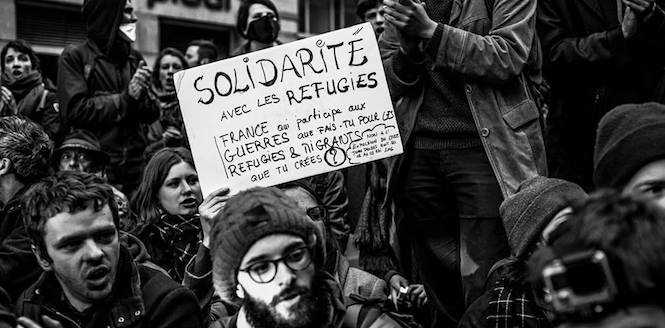 SOLIDARITÉ
AVEC LES REFUGIES
FRANCE qui participe aux
GUERRES que FAIS-TU POUR LES
REFUGIES & MIGRANTS
QUE TU CRÉES ?
NON A